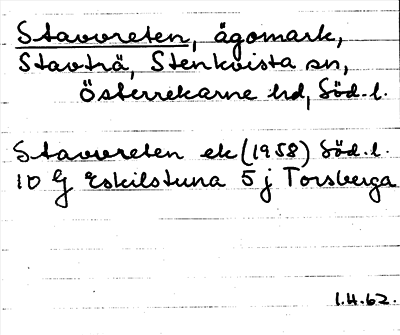 Stavvreten, ägomark,
Stavträ, Stenkvista sn,
Österrekarne hd, Söd.l.
Stavvreten ek (1958) Söd.l.
10 G Eskilstuna 5 j Torsberga
1.4.62.